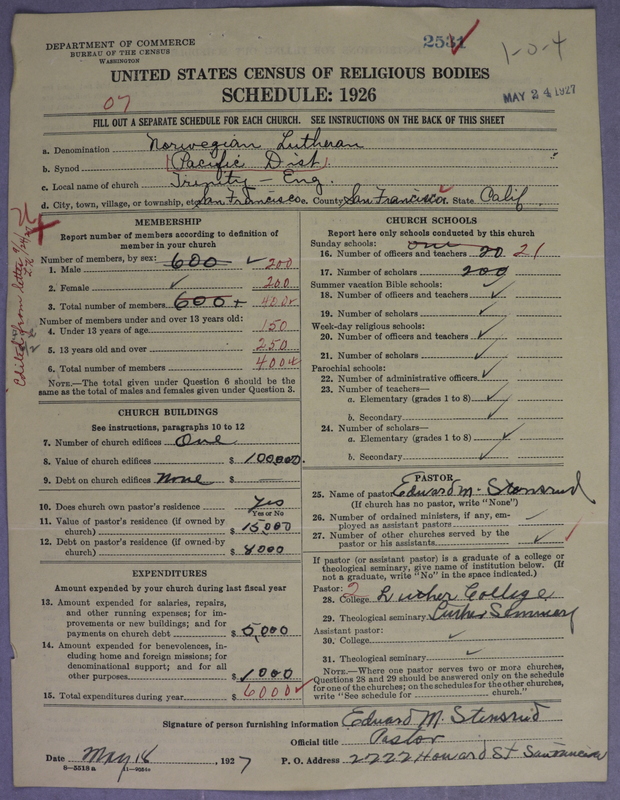 DEPARTMENT OF COMMERCE
BUREAU OF THE CENSUS
WASHINGTON
2531
1-0-4
UNITED STATES CENSUS OF RELIGIOUS BODIES
SCHEDULE: 1926
MAY 24 1927
07
FILL OUT A SEPARATE SCHEDULE FOR EACH CHURCH. SEE INSTRUCTIONS ON THE BACK OF THIS SHEET
a. Denomination Norwegian Lutheran
b. Synod (Pacific Dist)
c. Local name of church Trinity - Eng.
d. City, town, village, or township, etc. San Francisco e. County San Francisco State Calif
MEMBERSHIP
Report number of members according to definition of
member in your church
Number of members, by sex: 600
1. Male 200
2. Female 200
3. Total number of members 600+ 400x
Number of members under and over 13 years old:
4. Under 13 years of age 150
5. 13 years old and over 250
6. Total number of members 400x
NOTE.—The total given under Question 6 should be the
same as the total of males and females given under Question 3.
Edited from letter
CHURCH BUILDINGS
See instructions, paragraphs 10 to 12
7. Number of church edifices One
8. Value of church edifices $ 100,000.
9. Debt on church edifices None $ —
10. Does church own pastor's residence? Yes
Yes or No
11. Value of pastor's residence (if owned by
church) $ 15,000
12. Debt on pastor's residence (if owned by
church) $ 8000
EXPENDITURES
Amount expended by your church during last fiscal year
13. Amount expended for salaries, repairs,
and other running expenses; for im-
provements or new buildings; and for
payments on church debt $ 5,000
14. Amount expended for benevolences, in-
cluding home and foreign missions; for
denominational support; and for all
other purposes $ 1000
15. Total expenditures during year $ 6000
CHURCH SCHOOLS
Report here only schools conducted by this church
Sunday schools: one
16. Number of officers and teachers 20 21
17. Number of scholars 200
Summer vacation Bible schools:
18. Number of officers and teachers
19. Number of scholars
Week-day religious schools:
20. Number of officers and teachers
21. Number of scholars
Parochial schools:
22. Number of administrative officers
23. Number of teachers—
a. Elementary (grades 1 to 8)
b. Secondary
24. Number of scholars—
a. Elementary (grades 1 to 8)
b. Secondary
PASTOR
25. Name of pastor Edward M. Stensrud
(If church has no pastor, write "None")
26. Number of ordained ministers, if any, em-
ployed as assistant pastors
27. Number of other churches served by the
pastor or his assistants
If pastor (or assistant pastor) is a graduate of a college or
theological seminary, give name of institution below. (If
not a graduate, write "No" in the space indicated.)
Pastor: 2
28. College Luther College
29. Theological seminary Luther Seminary
Assistant pastor:
30. College
31. Theological seminary
NOTE.—Where one pastor serves two or more churches,
Questions 28 and 29 should be answered only on the schedule
for one of the churches; on the schedules for the other churches,
write "See schedule for church."
Signature of person furnishing information Edward M. Stensrud
Official title Pastor
Date May 18, 1927 P. O. Address 2222 Howard St San Francisco
8—5518 a 11—9284